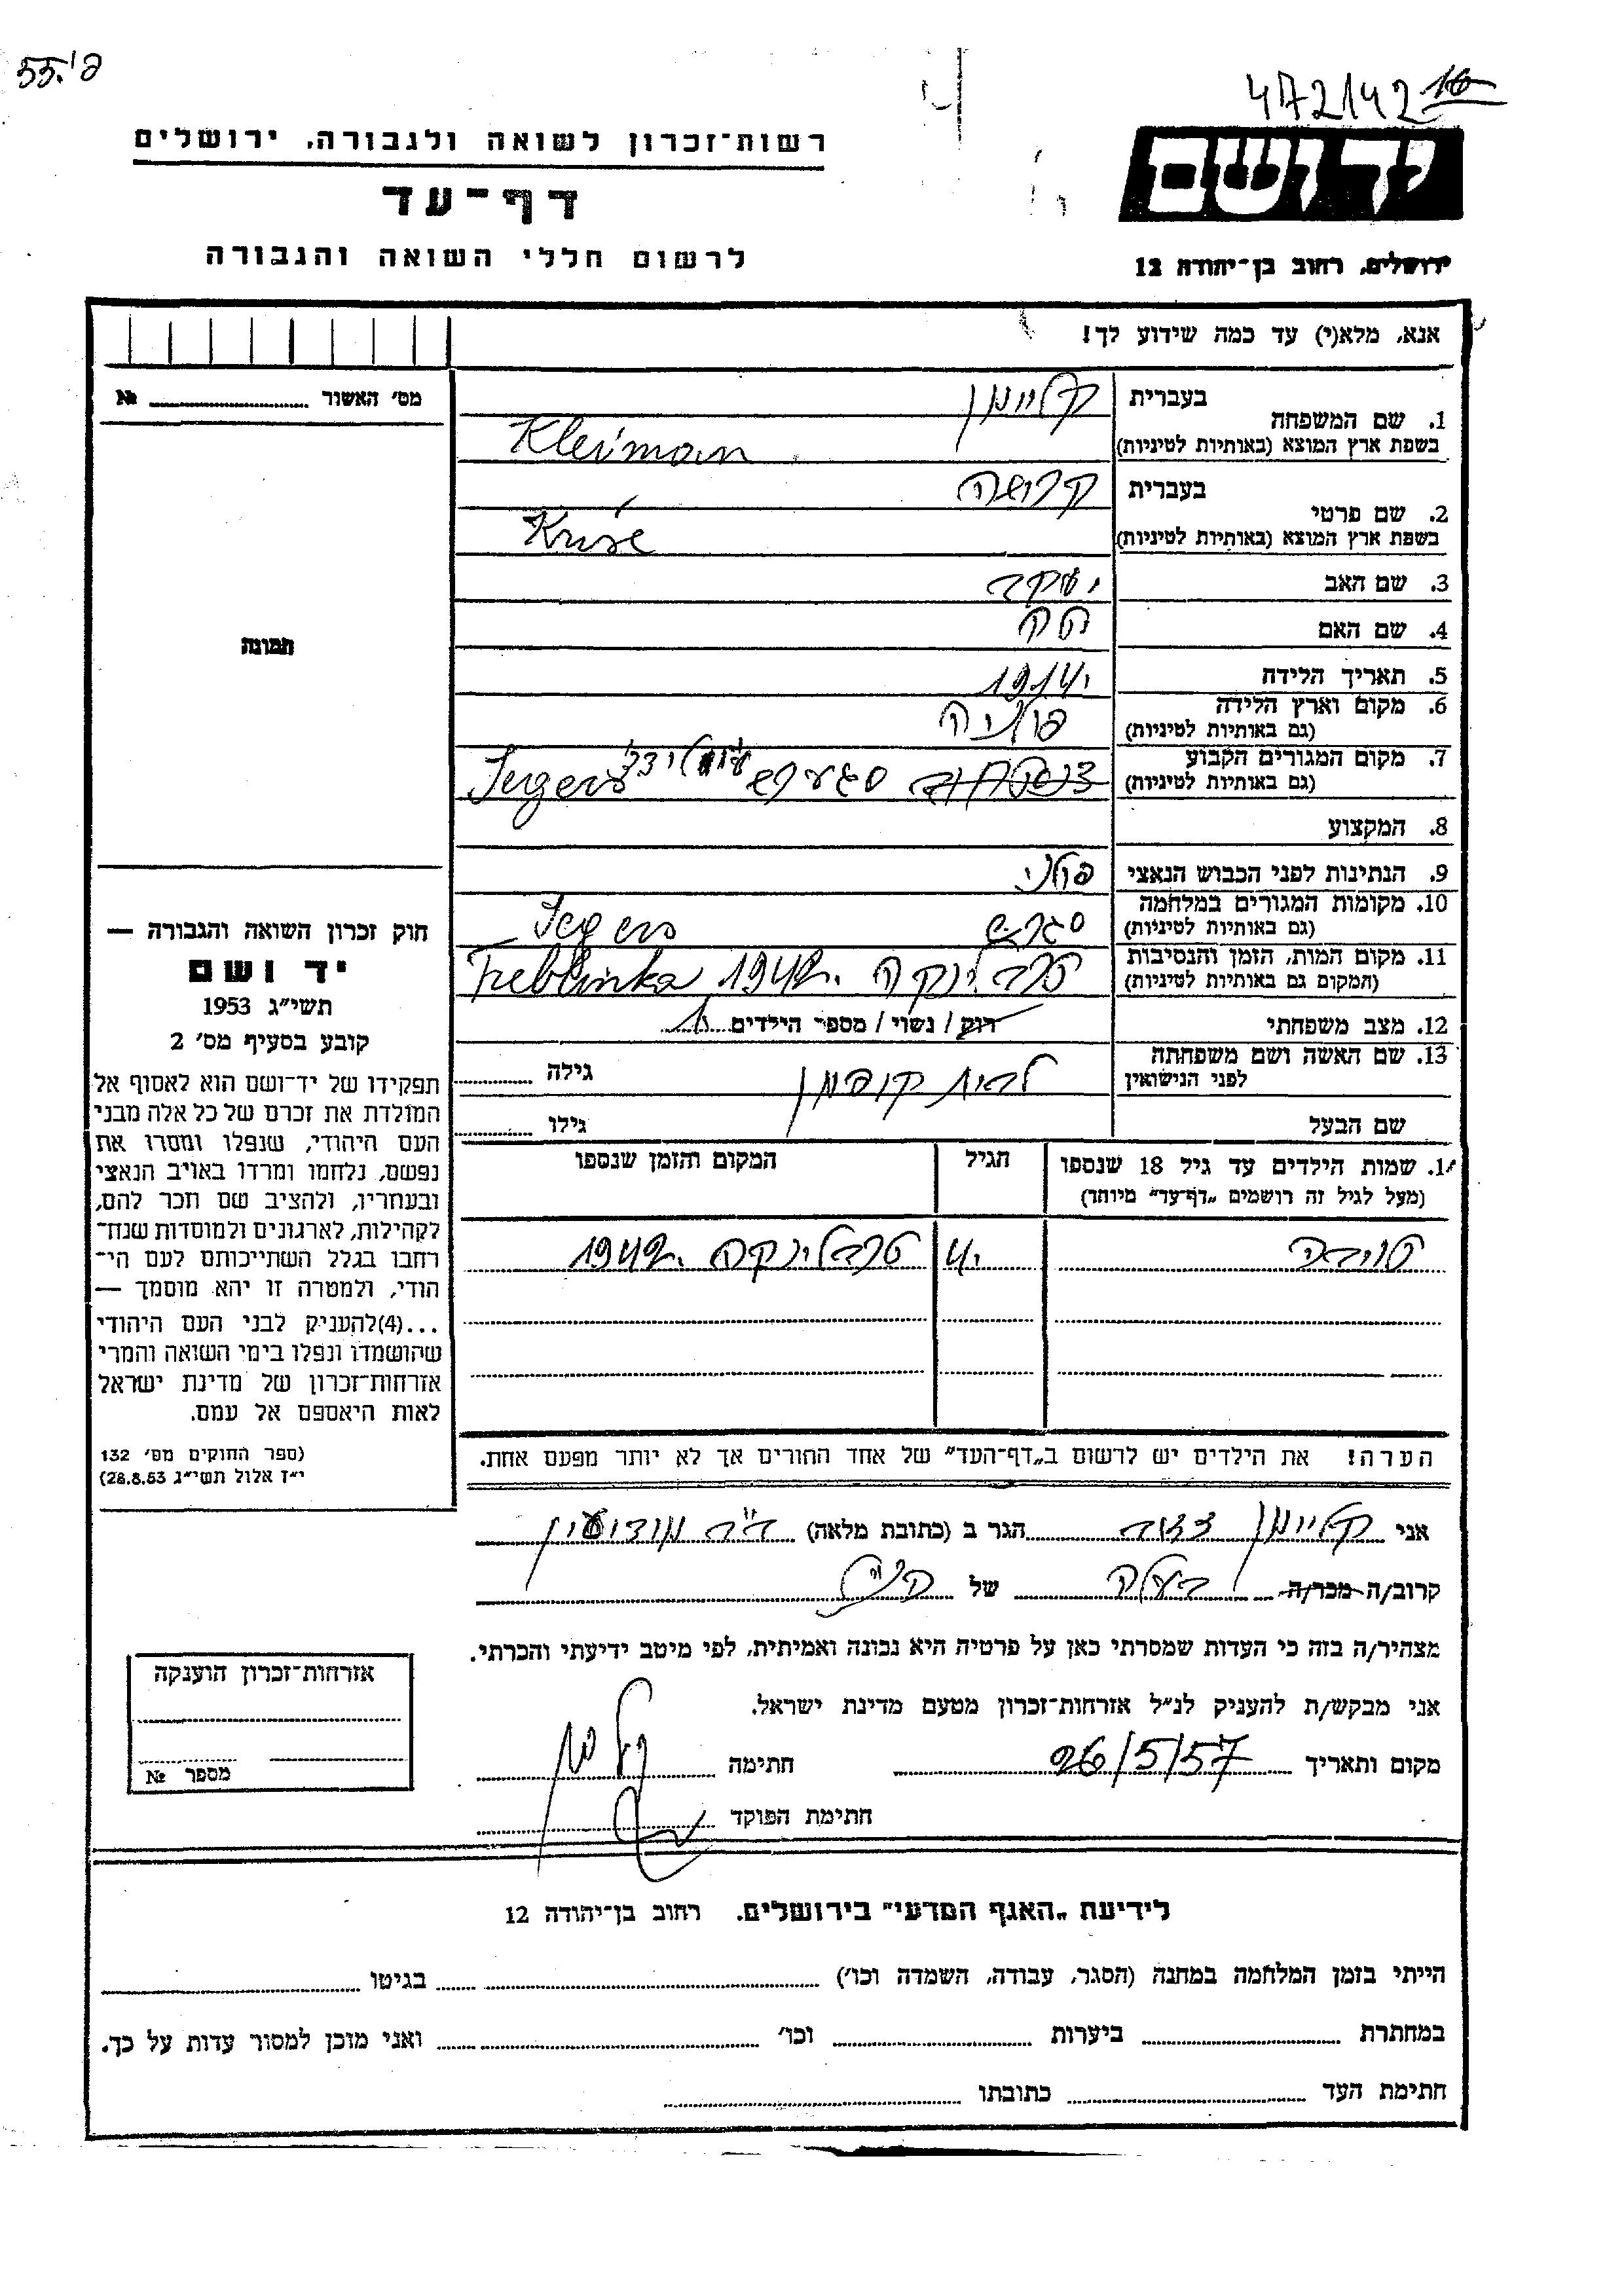 55.פ'
472142 16
רשות־זכרון לשואה ולגבורה, ירושלים
דף־עד
לרשום חללי השואה והגבורה
יד ושם
ירושלים, רחוב בן־יהודה 12
אנא, מלא(י) עד כמה שידוע לך!
מס' האשור №
תמונה
1. שם המשפחה
בעברית קליימן
בשפת ארץ המוצא (באותיות לטיניות) Kleiman
2. שם פרטי
בעברית קרושה
בשפת ארץ המוצא (באותיות לטיניות) Kruse
3. שם האב יעקב
4. שם האם
5. תאריך הלידה 1914
6. מקום וארץ הלידה פולניה
(גם באותיות לטיניות)
7. מקום המגורים הקבוע
(גם באותיות לטיניות)
8. המקצוע
9. הנתינות לפני הכבוש הנאצי פולני
10. מקומות המגורים במלחמה
(גם באותיות לטיניות)
11. מקום המות, הזמן והנסיבות טרבלינקה 1942. Treblinka
(המקום גם באותיות לטיניות)
12. מצב משפחתי רוק / נשוי / מספר הילדים 1
13. שם האשה ושם משפחתה
לפני הנישואין קופמן גילה
שם הבעל גילו
14. שמות הילדים עד גיל 18 שנספו הגיל המקום והזמן שנספו
(מעל לגיל זה רושמים „דף־עד" מיוחד)
טויבה 4 טרבלינקה 1942.
הערה! את הילדים יש לרשום ב„דף־העד" של אחד ההורים אך לא יותר מפעם אחת.
חוק זכרון השואה והגבורה —
יד ושם
תשי״ג 1953
קובע בסעיף מס' 2
תפקידו של יד־ושם הוא לאסוף אל
המולדת את זכרם של כל אלה מבני
העם היהודי, שנפלו ומסרו את
נפשם, נלחמו ומרדו באויב הנאצי
ובעוזריו, ולהציב שם וזכר להם,
לקהילות, לארגונים ולמוסדות שנח־
רחבו בגלל השתייכותם לעם הי־
הודי, ולמטרה זו יהא מוסמך —
...(4)להעניק לבני העם היהודי
שהושמדו ונפלו בימי השואה והמרי
אזרחות־זכרון של מדינת ישראל
לאות היאספם אל עמם.
(ספר החוקים מס' 132
י״ז אלול תשי״ג 28.8.53)
אני קליימן הגר ב (כתובת מלאה)
קרוב/ה מכר/ה של
מצהיר/ה בזה כי העדות שמסרתי כאן על פרטיה היא נכונה ואמיתית, לפי מיטב ידיעתי והכרתי.
אני מבקש/ת להעניק לנ״ל אזרחות־זכרון מטעם מדינת ישראל.
מקום ותאריך 26/5/57 חתימה
חתימת הפוקד
אזרחות־זכרון הוענקה
מספר №
לידיעת „האגף המדעי" בירושלים. רחוב בן־יהודה 12
הייתי בזמן המלחמה במחנה (הסגר, עבודה, השמדה וכו') בגיטו
במחתרת ביערות וכו' ואני מוכן למסור עדות על כך.
חתימת העד כתובתו